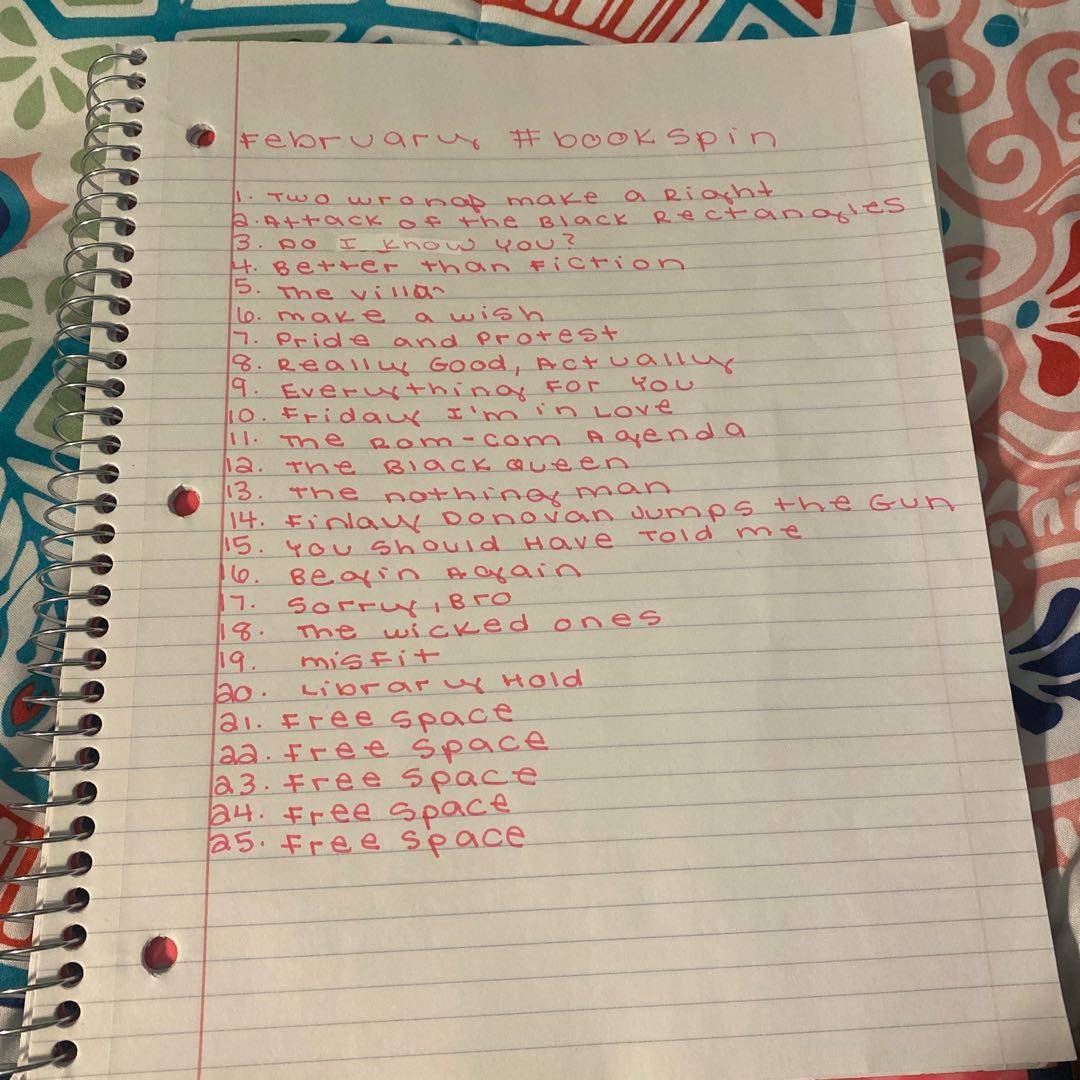 February #bookspin
1. Two wrongs make a Right
2. Attack of the Black Rectangles
3. Do I know you?
4. Better than Fiction
5. The villa
6. make a wish
7. Pride and Protest
8. Really Good, Actually
9. Everything For You
10. Friday I'm in Love
11. The Rom-com Agenda
12. The Black Queen
13. The nothing man
14. Finlay Donovan Jumps the Gun
15. You Should Have Told me
16. Begin Again
17. Sorry, Bro
18. The wicked ones
19. misfit
20. Library Hold
21. Free Space
22. Free Space
23. Free Space
24. Free Space
25. Free Space